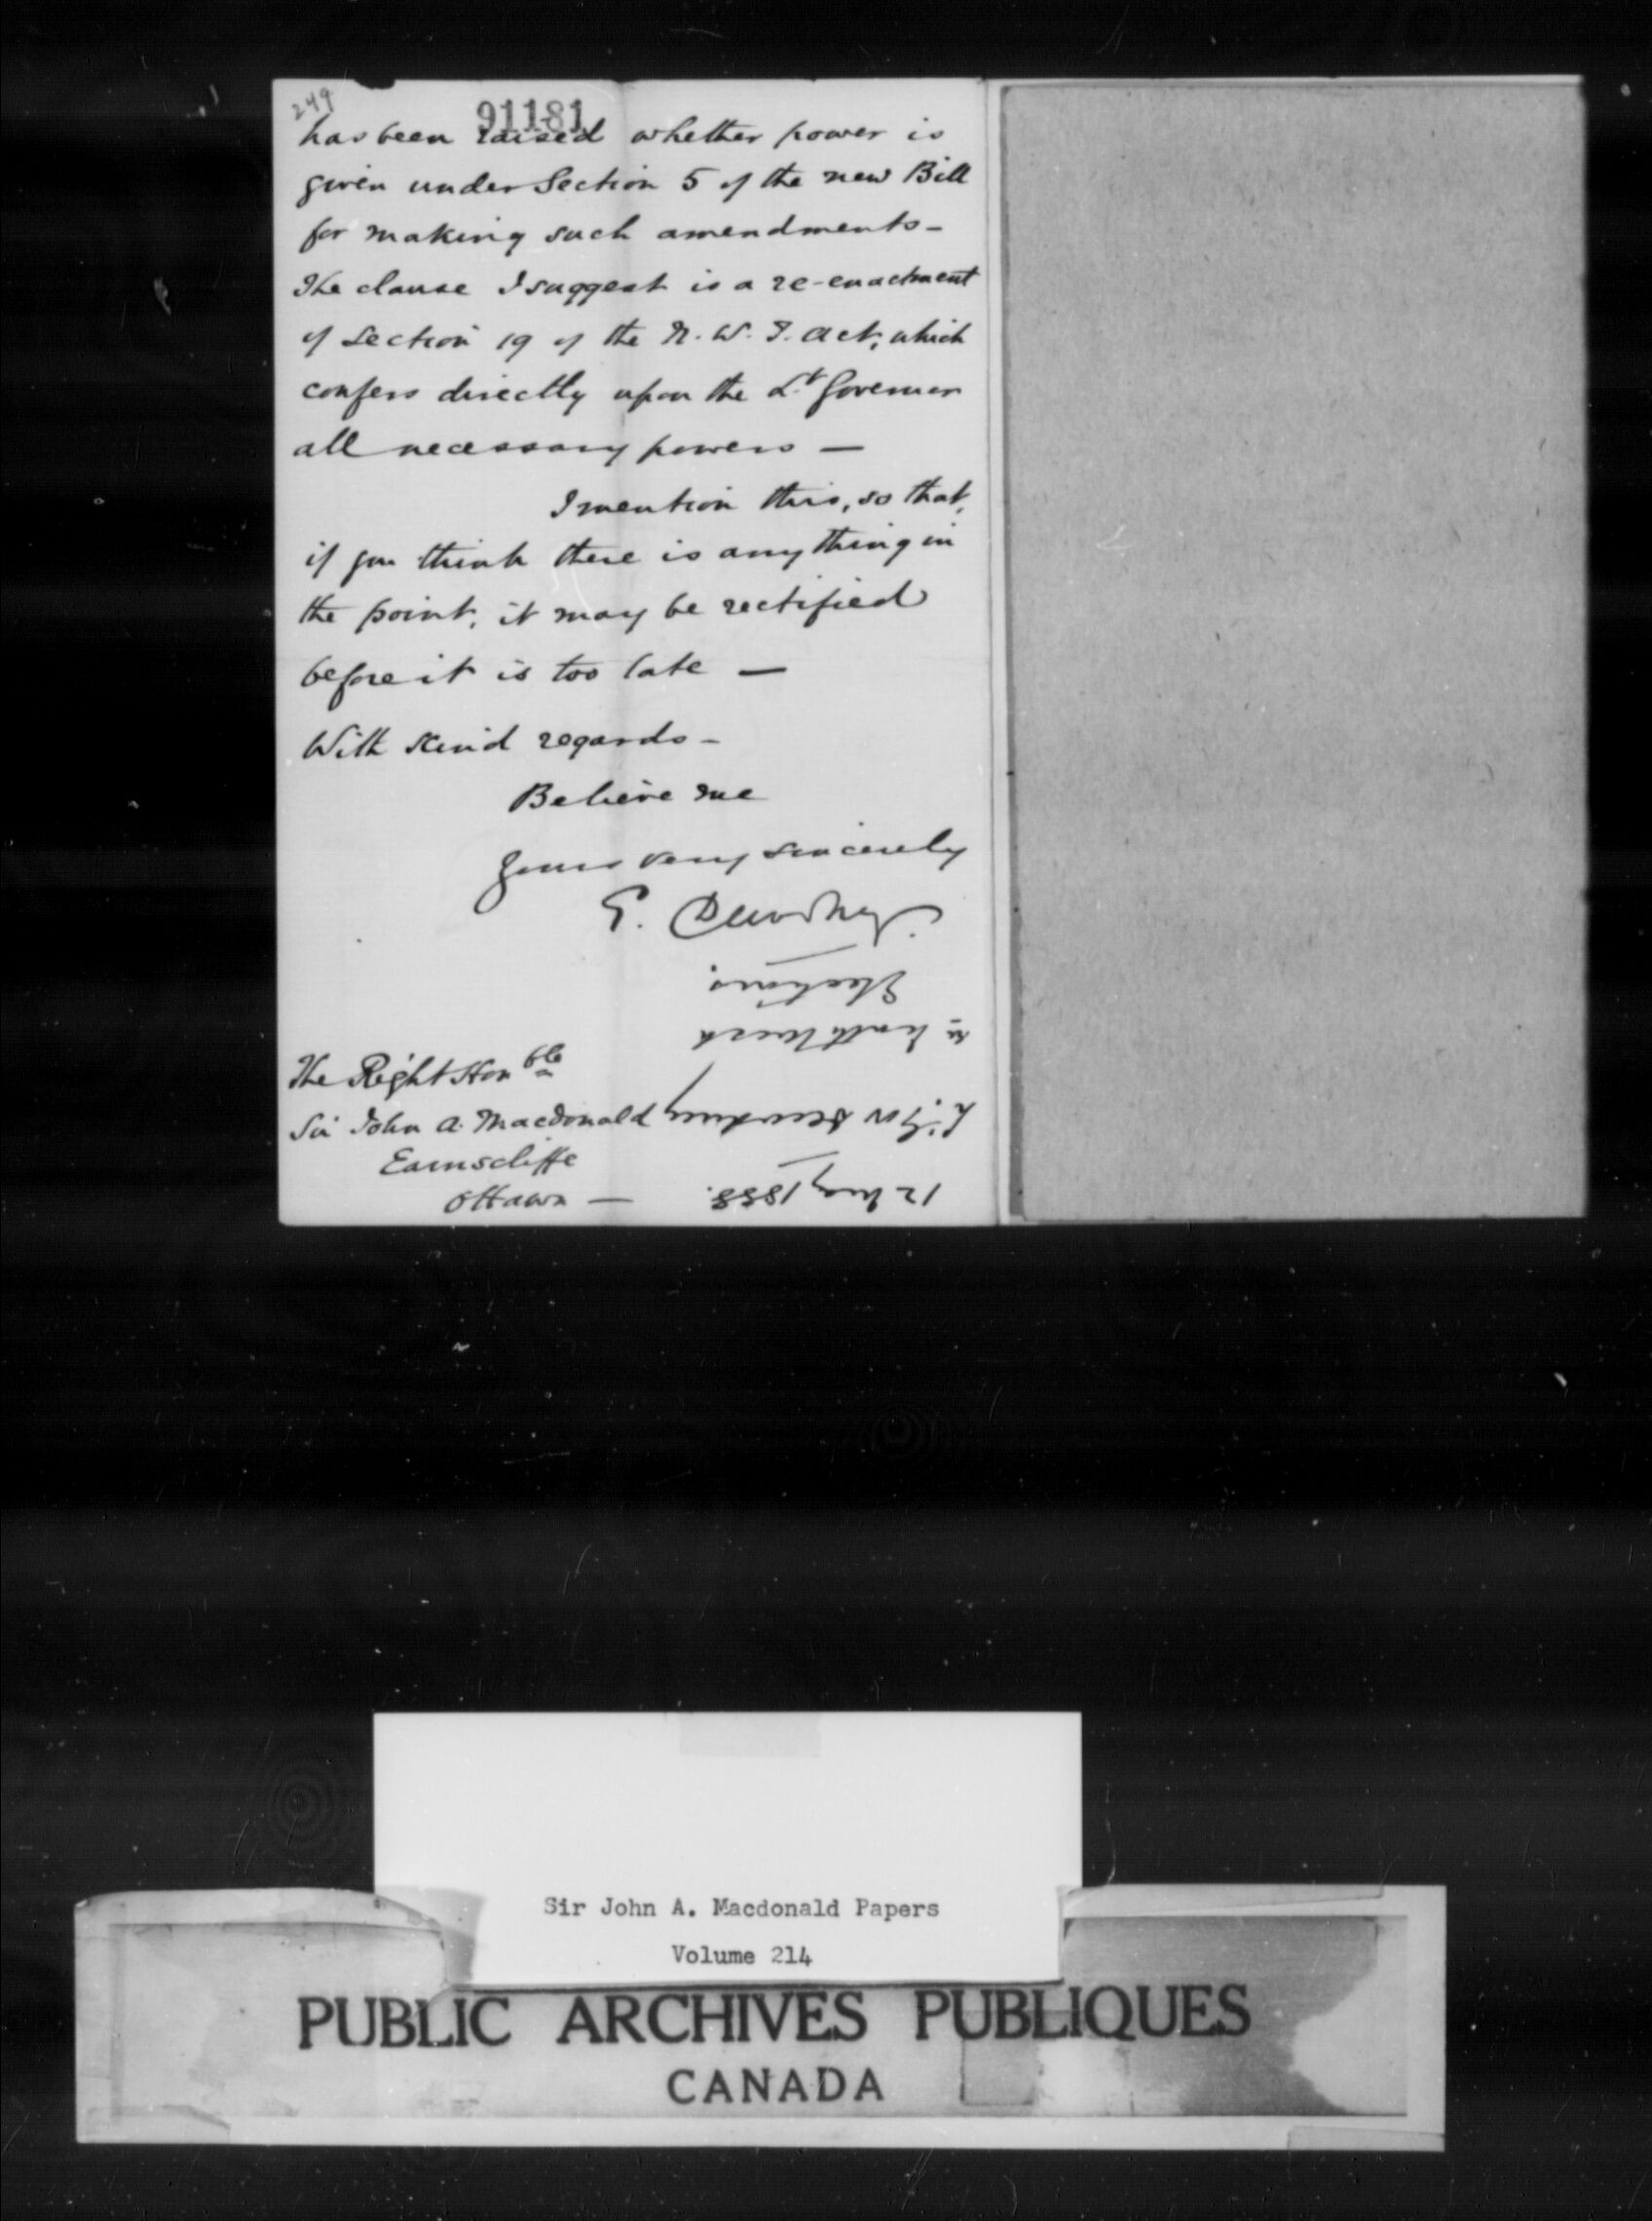 249
91181
has been raised whether power is
given under Section 5 of the new Bill
for making such amendments -
The clause I suggest is a re-enactment
of Section 19 of the N. W. T. Act, which
confers directly upon the Lt Governor
all necessary powers —
I mention this, so that,
if you think there is anything in
the point, it may be rectified
before it is too late —
With kind regards -
Believe me
Yours very sincerely
E. Dewdney
The Right Honble
Sir John A. Macdonald
Earnscliffe
Ottawa —
12 May 1888.
Lt. Gov Dewdney
re North West
Elections.
Sir John A. Macdonald Papers
Volume 214
PUBLIC ARCHIVES PUBLIQUES
CANADA